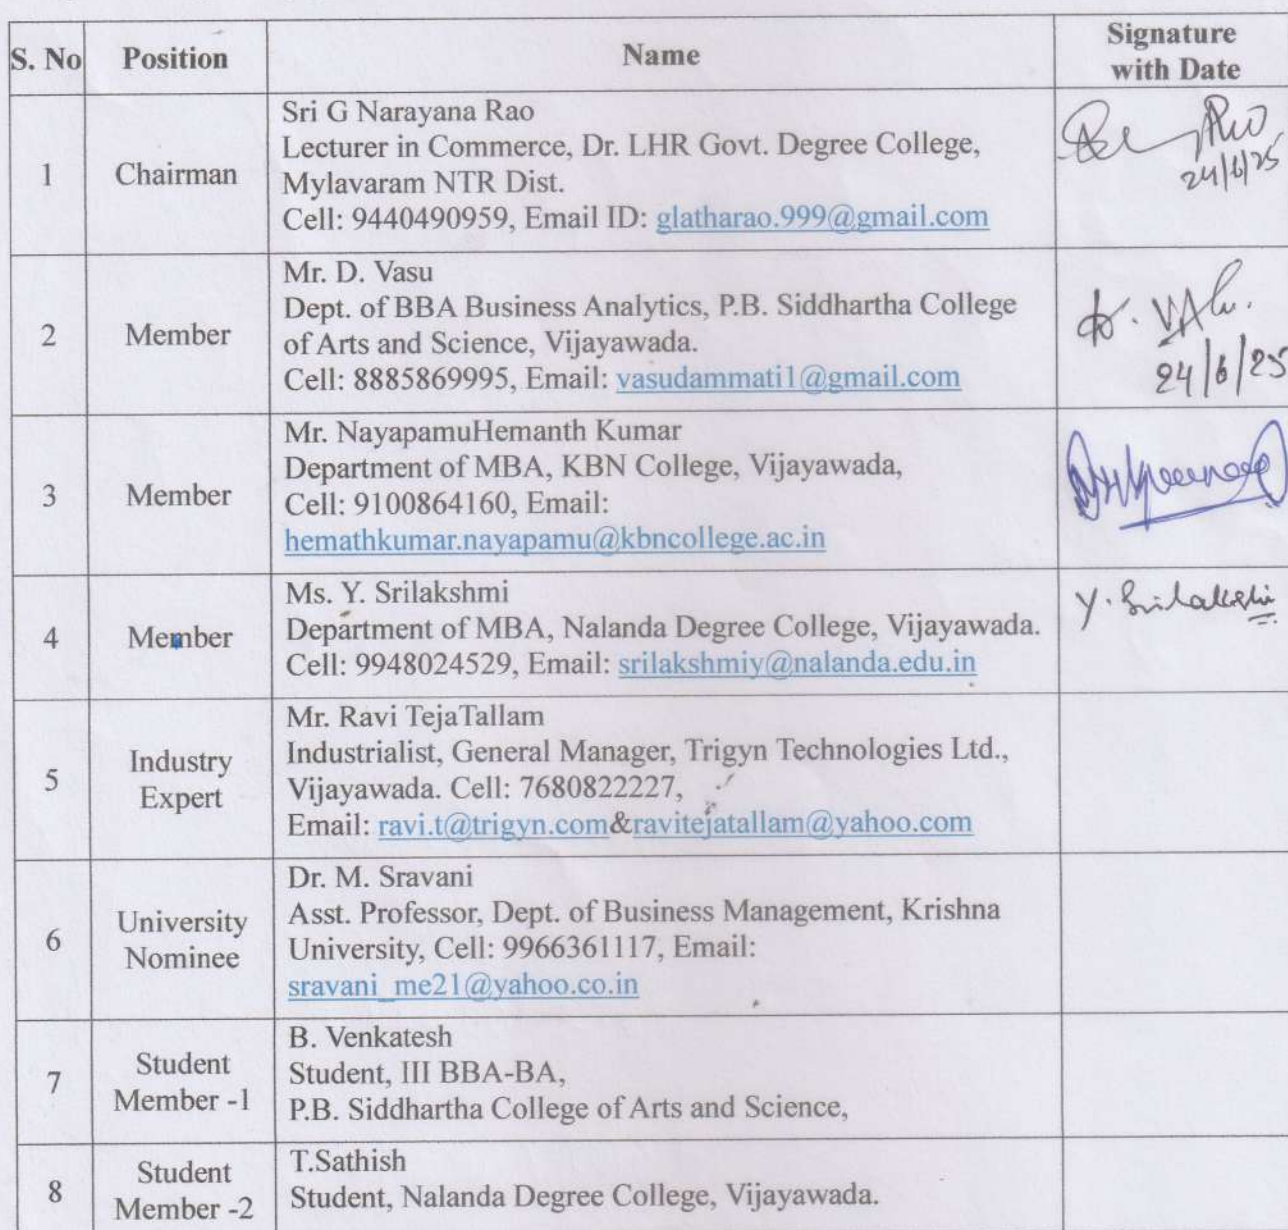 S. No Position Name Signature with Date
1 Chairman Sri G Narayana Rao
Lecturer in Commerce, Dr. LHR Govt. Degree College,
Mylavaram NTR Dist.
Cell: 9440490959, Email ID: glatharao.999@gmail.com
24/6/25
2 Member Mr. D. Vasu
Dept. of BBA Business Analytics, P.B. Siddhartha College
of Arts and Science, Vijayawada.
Cell: 8885869995, Email: vasudammati1@gmail.com
24/6/25
3 Member Mr. NayapamuHemanth Kumar
Department of MBA, KBN College, Vijayawada,
Cell: 9100864160, Email:
hemathkumar.nayapamu@kbncollege.ac.in
4 Member Ms. Y. Srilakshmi
Department of MBA, Nalanda Degree College, Vijayawada.
Cell: 9948024529, Email: srilakshmiy@nalanda.edu.in
Y. Srilakshmi
5 Industry Expert Mr. Ravi TejaTallam
Industrialist, General Manager, Trigyn Technologies Ltd.,
Vijayawada. Cell: 7680822227,
Email: ravi.t@trigyn.com&ravitejatallam@yahoo.com
6 University Nominee Dr. M. Sravani
Asst. Professor, Dept. of Business Management, Krishna
University, Cell: 9966361117, Email:
sravani_me21@yahoo.co.in
7 Student Member -1 B. Venkatesh
Student, III BBA-BA,
P.B. Siddhartha College of Arts and Science,
8 Student Member -2 T.Sathish
Student, Nalanda Degree College, Vijayawada.